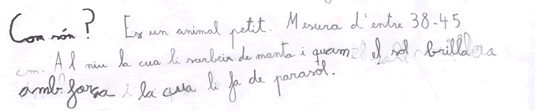 Com són? Es un animal petit. Mesura d'entre 38-45
cm. Al niu la cua li serbeix de manta i quam el sol brilla
amb forsa i la cua li fa de parasol.